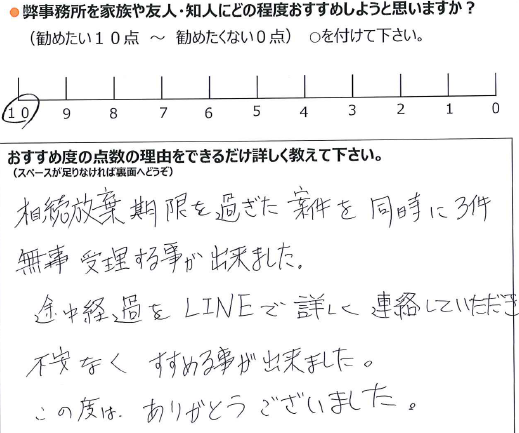 ●弊事務所を家族や友人・知人にどの程度おすすめしようと思いますか？
（勧めたい１０点　～　勧めたくない０点）　○を付けて下さい。
10 9 8 7 6 5 4 3 2 1 0
おすすめ度の点数の理由をできるだけ詳しく教えて下さい。
（スペースが足りなければ裏面へどうぞ）
相続放棄期限を過ぎた案件を同時に3件
無事受理する事が出来ました。
途中経過をLINEで詳しく連絡していただき
不安なくすすめる事が出来ました。
この度は、ありがとうございました。